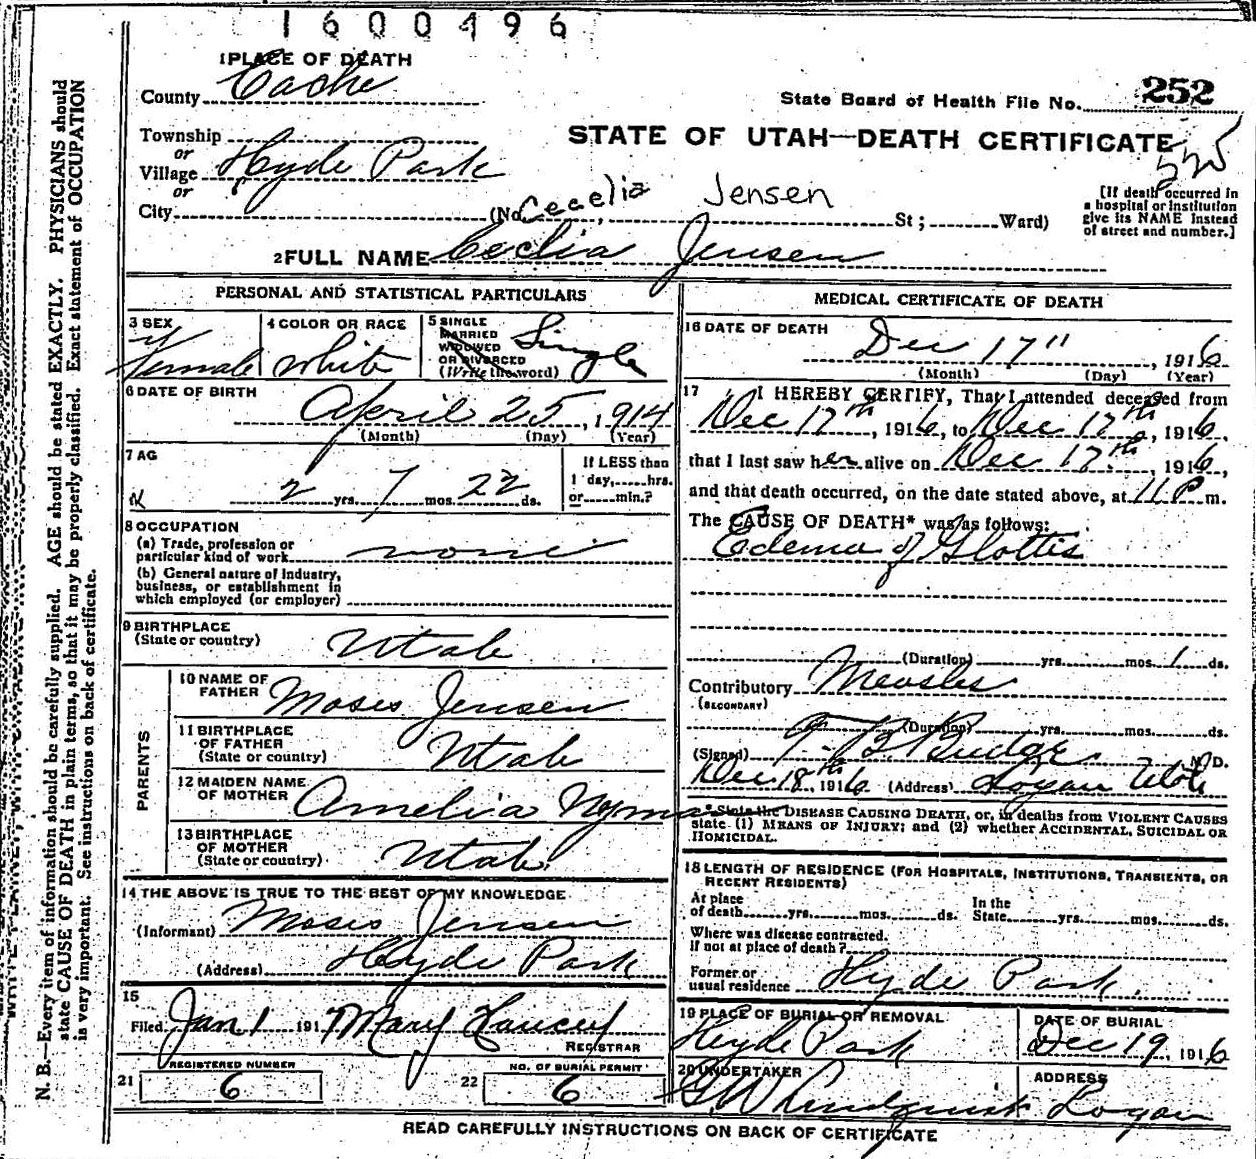 1600496
1 PLACE OF DEATH
County Cache
State Board of Health File No. 252
Township
or
Village Hyde Park
or
City
STATE OF UTAH—DEATH CERTIFICATE
525
(No. Cecelia Jensen St; Ward)
[If death occurred in
a hospital or institution
give its NAME instead
of street and number.]
2 FULL NAME Cecelia Jensen
PERSONAL AND STATISTICAL PARTICULARS
3 SEX
Female
4 COLOR OR RACE
White
5 SINGLE
MARRIED
WIDOWED
OR DIVORCED
(Write the word)
Single
6 DATE OF BIRTH
April 25, 1914
(Month) (Day) (Year)
7 AGE
2 yrs. 7 mos. 22 ds.
If LESS than
1 day, hrs.
or min.?
8 OCCUPATION
(a) Trade, profession or
particular kind of work none
(b) General nature of industry,
business, or establishment in
which employed (or employer)
9 BIRTHPLACE
(State or country) Utah
PARENTS
10 NAME OF
FATHER Moses Jensen
11 BIRTHPLACE
OF FATHER
(State or country) Utah
12 MAIDEN NAME
OF MOTHER Amelia Nyman
13 BIRTHPLACE
OF MOTHER
(State or country) Utah
14 THE ABOVE IS TRUE TO THE BEST OF MY KNOWLEDGE
(Informant) Moses Jensen
(Address) Hyde Park
15
Filed Jan 1 1917 Mary
REGISTRAR
21 REGISTERED NUMBER
6
22 NO. OF BURIAL PERMIT
6
MEDICAL CERTIFICATE OF DEATH
16 DATE OF DEATH
Dec 17", 1916
(Month) (Day) (Year)
17 I HEREBY CERTIFY, That I attended deceased from
Dec 17th, 1916, to Dec 17th, 1916,
that I last saw her alive on Dec 17th, 1916,
and that death occurred, on the date stated above, at 11 P m.
The CAUSE OF DEATH* was as follows:
Edema of Glottis
(Duration) yrs. mos. 1 ds.
Contributory Measles
(SECONDARY)
(Duration) yrs. mos. ds.
(Signed) T. B. Budge M. D.
Dec 18th, 1916 (Address) Logan Utah
* State the DISEASE CAUSING DEATH, or, in deaths from VIOLENT CAUSES
state (1) MEANS OF INJURY; and (2) whether ACCIDENTAL, SUICIDAL OR
HOMICIDAL.
18 LENGTH OF RESIDENCE (FOR HOSPITALS, INSTITUTIONS, TRANSIENTS, OR
RECENT RESIDENTS)
At place
of death yrs. mos. ds.
In the
State yrs. mos. ds.
Where was disease contracted.
if not at place of death?
Former or
usual residence Hyde Park.
19 PLACE OF BURIAL OR REMOVAL
Hyde Park
DATE OF BURIAL
Dec 19, 1916
20 UNDERTAKER
ADDRESS
Logan
READ CAREFULLY INSTRUCTIONS ON BACK OF CERTIFICATE
N. B.—Every item of information should be carefully supplied. AGE should be stated EXACTLY. PHYSICIANS should
state CAUSE OF DEATH in plain terms, so that it may be properly classified. Exact statement of OCCUPATION
is very important. See instructions on back of certificate.